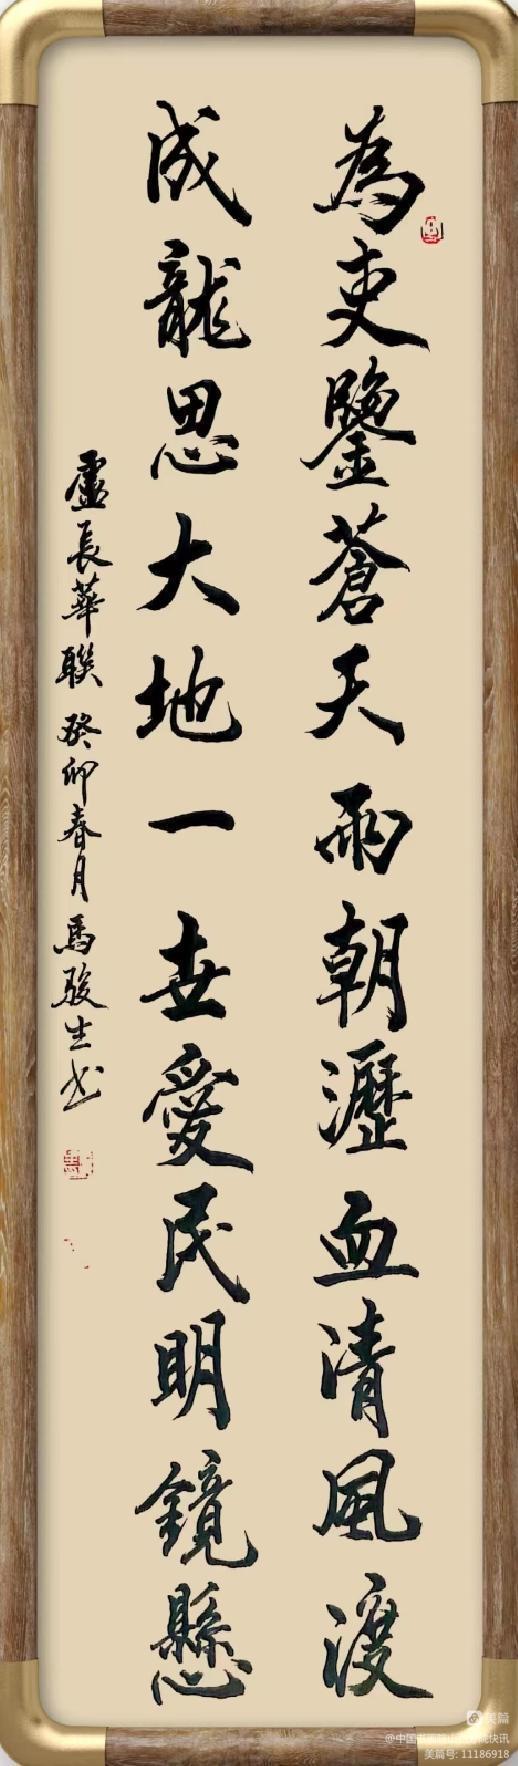 為吏鑒蒼天兩朝瀝血清風渡
成龍思大地一世愛民明鏡懸
盧長華聯 癸卯春月 馬駿生书
美篇
@中国书画
院快讯
美篇号: 11186918